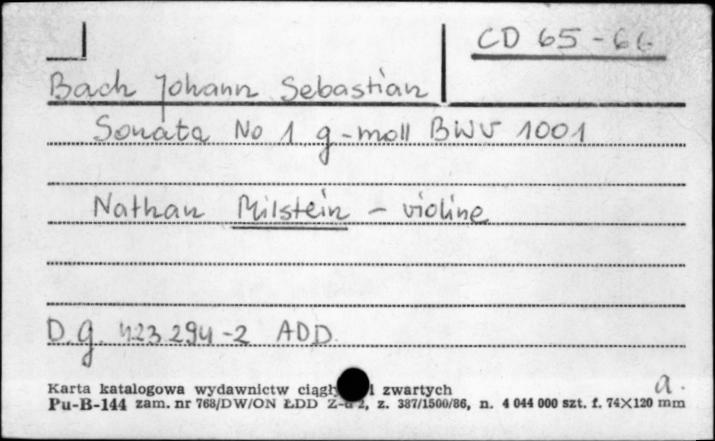 CD 65-66
Bach Johann Sebastian
Sonata No 1 g-moll BWV 1001
Nathan Milstein - violine
D.g. 423 294-2 ADD.
a.
Karta katalogowa wydawnictw zwartych
Pu-B-144 zam. nr 768/DW/ON ŁDD z. 387/1500/86, n. 4 044 000 szt. f. 74×120 mm